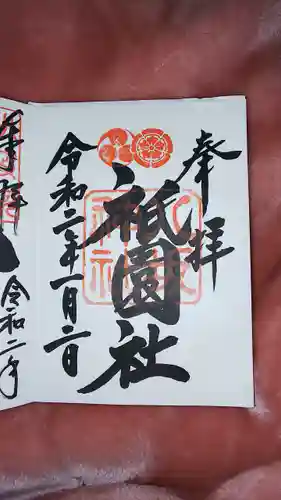 奉拝
祇園社
令和二年一月二日
奉拝
令和二年